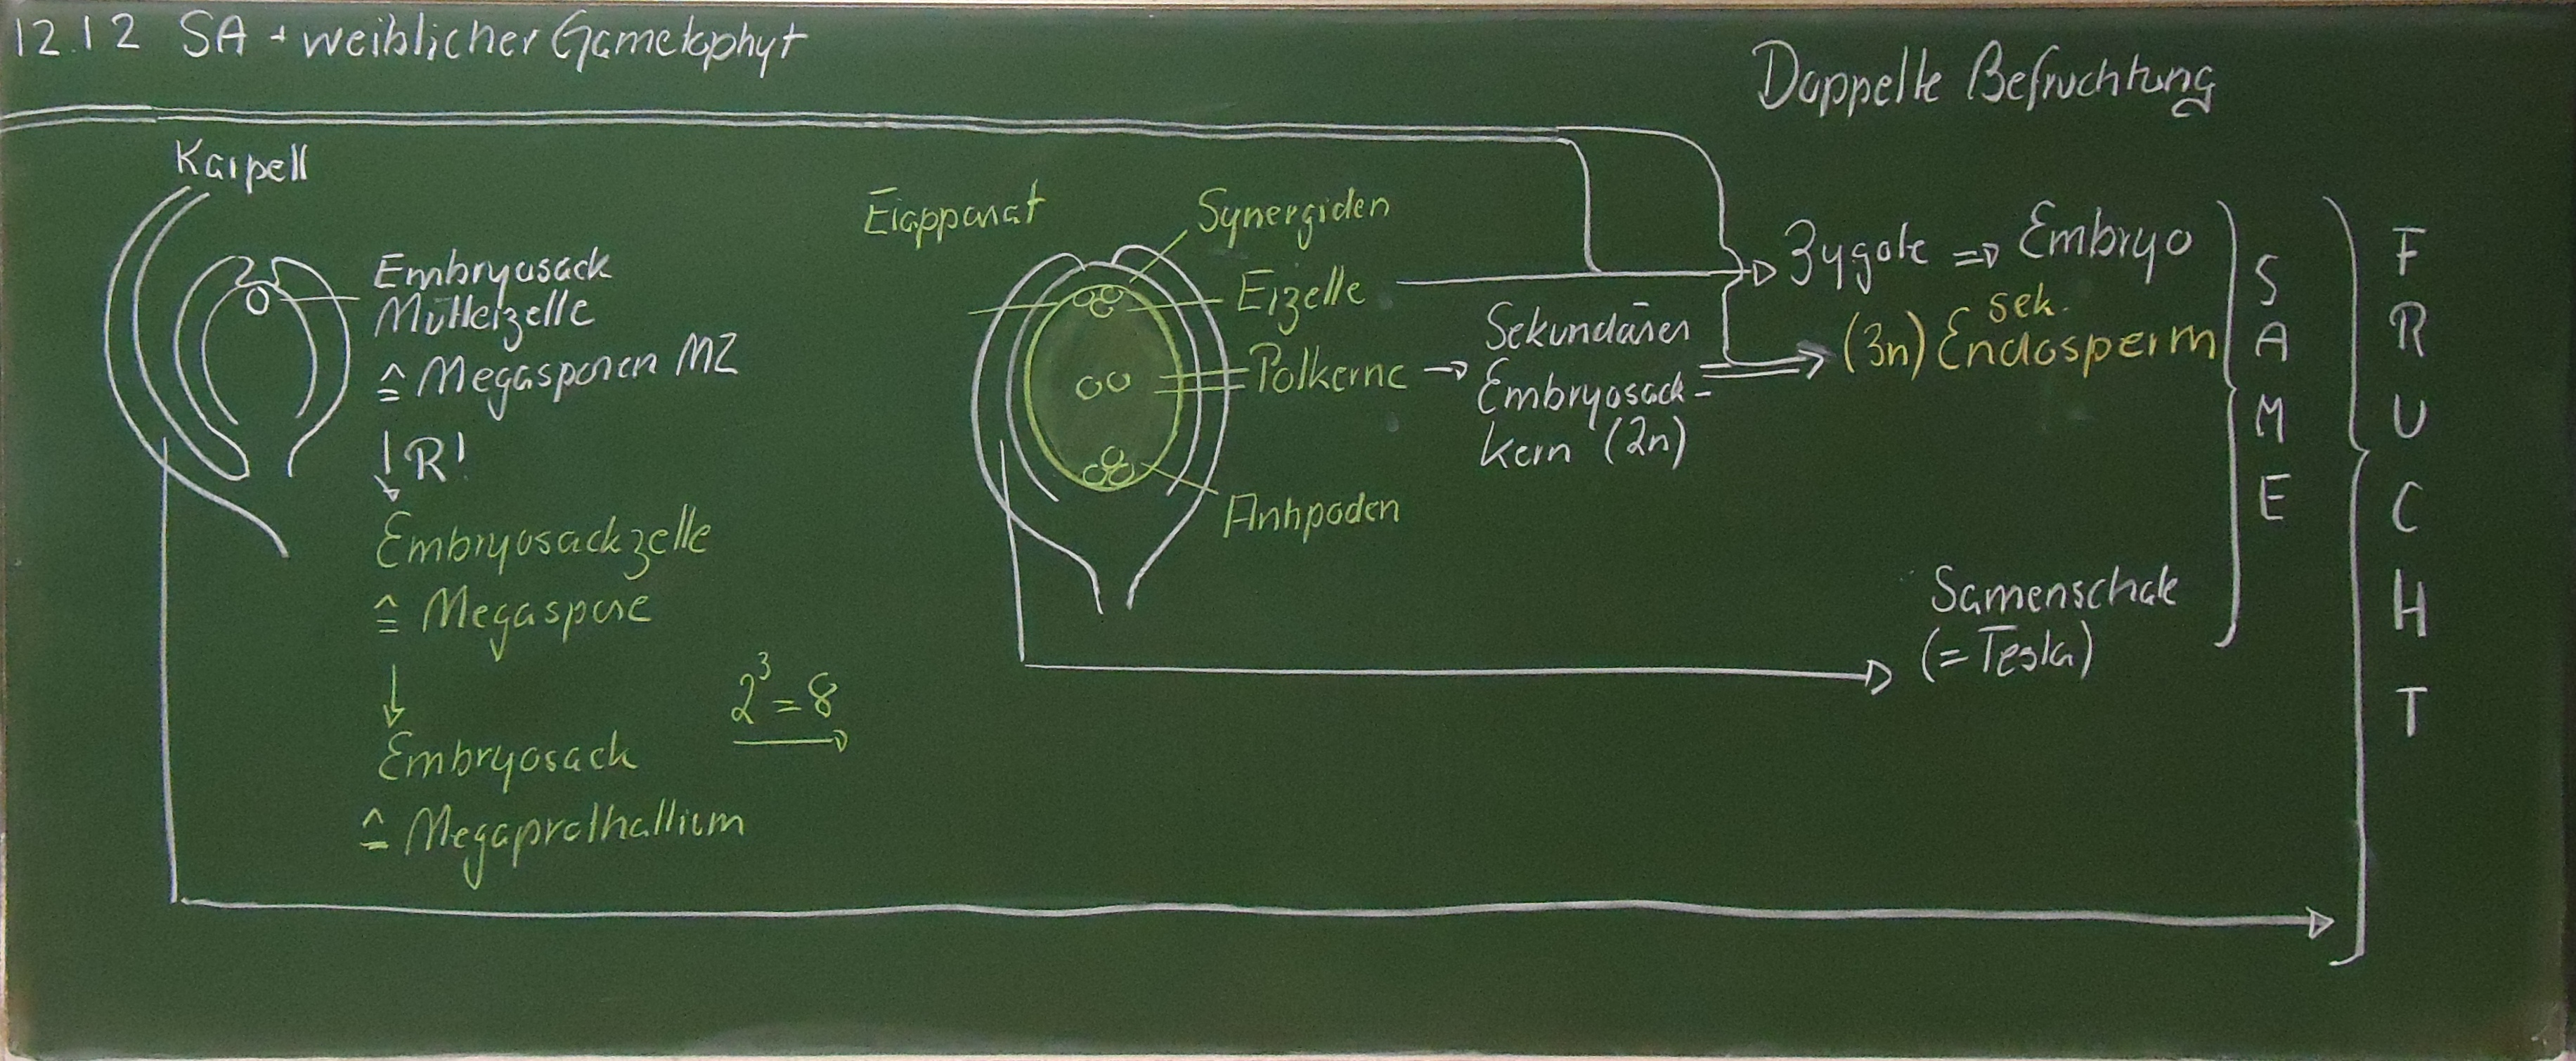 12.12 SA + weiblicher Gametophyt
Doppelte Befruchtung
Karpell
Embryosack
Mutterzelle
≙ Megasporen MZ
↓ R!
Embryosackzelle
≙ Megaspore
↓
Embryosack
≙ Megaprothallium
2³ = 8
→
Eiapparat
Synergiden
Eizelle
Polkerne →
Antipoden
Sekundärer
Embryosack-
kern (2n)
Zygote ⇒ Embryo
sek.
(3n) Endosperm
Samenschale
(= Testa)
SAME
FRUCHT